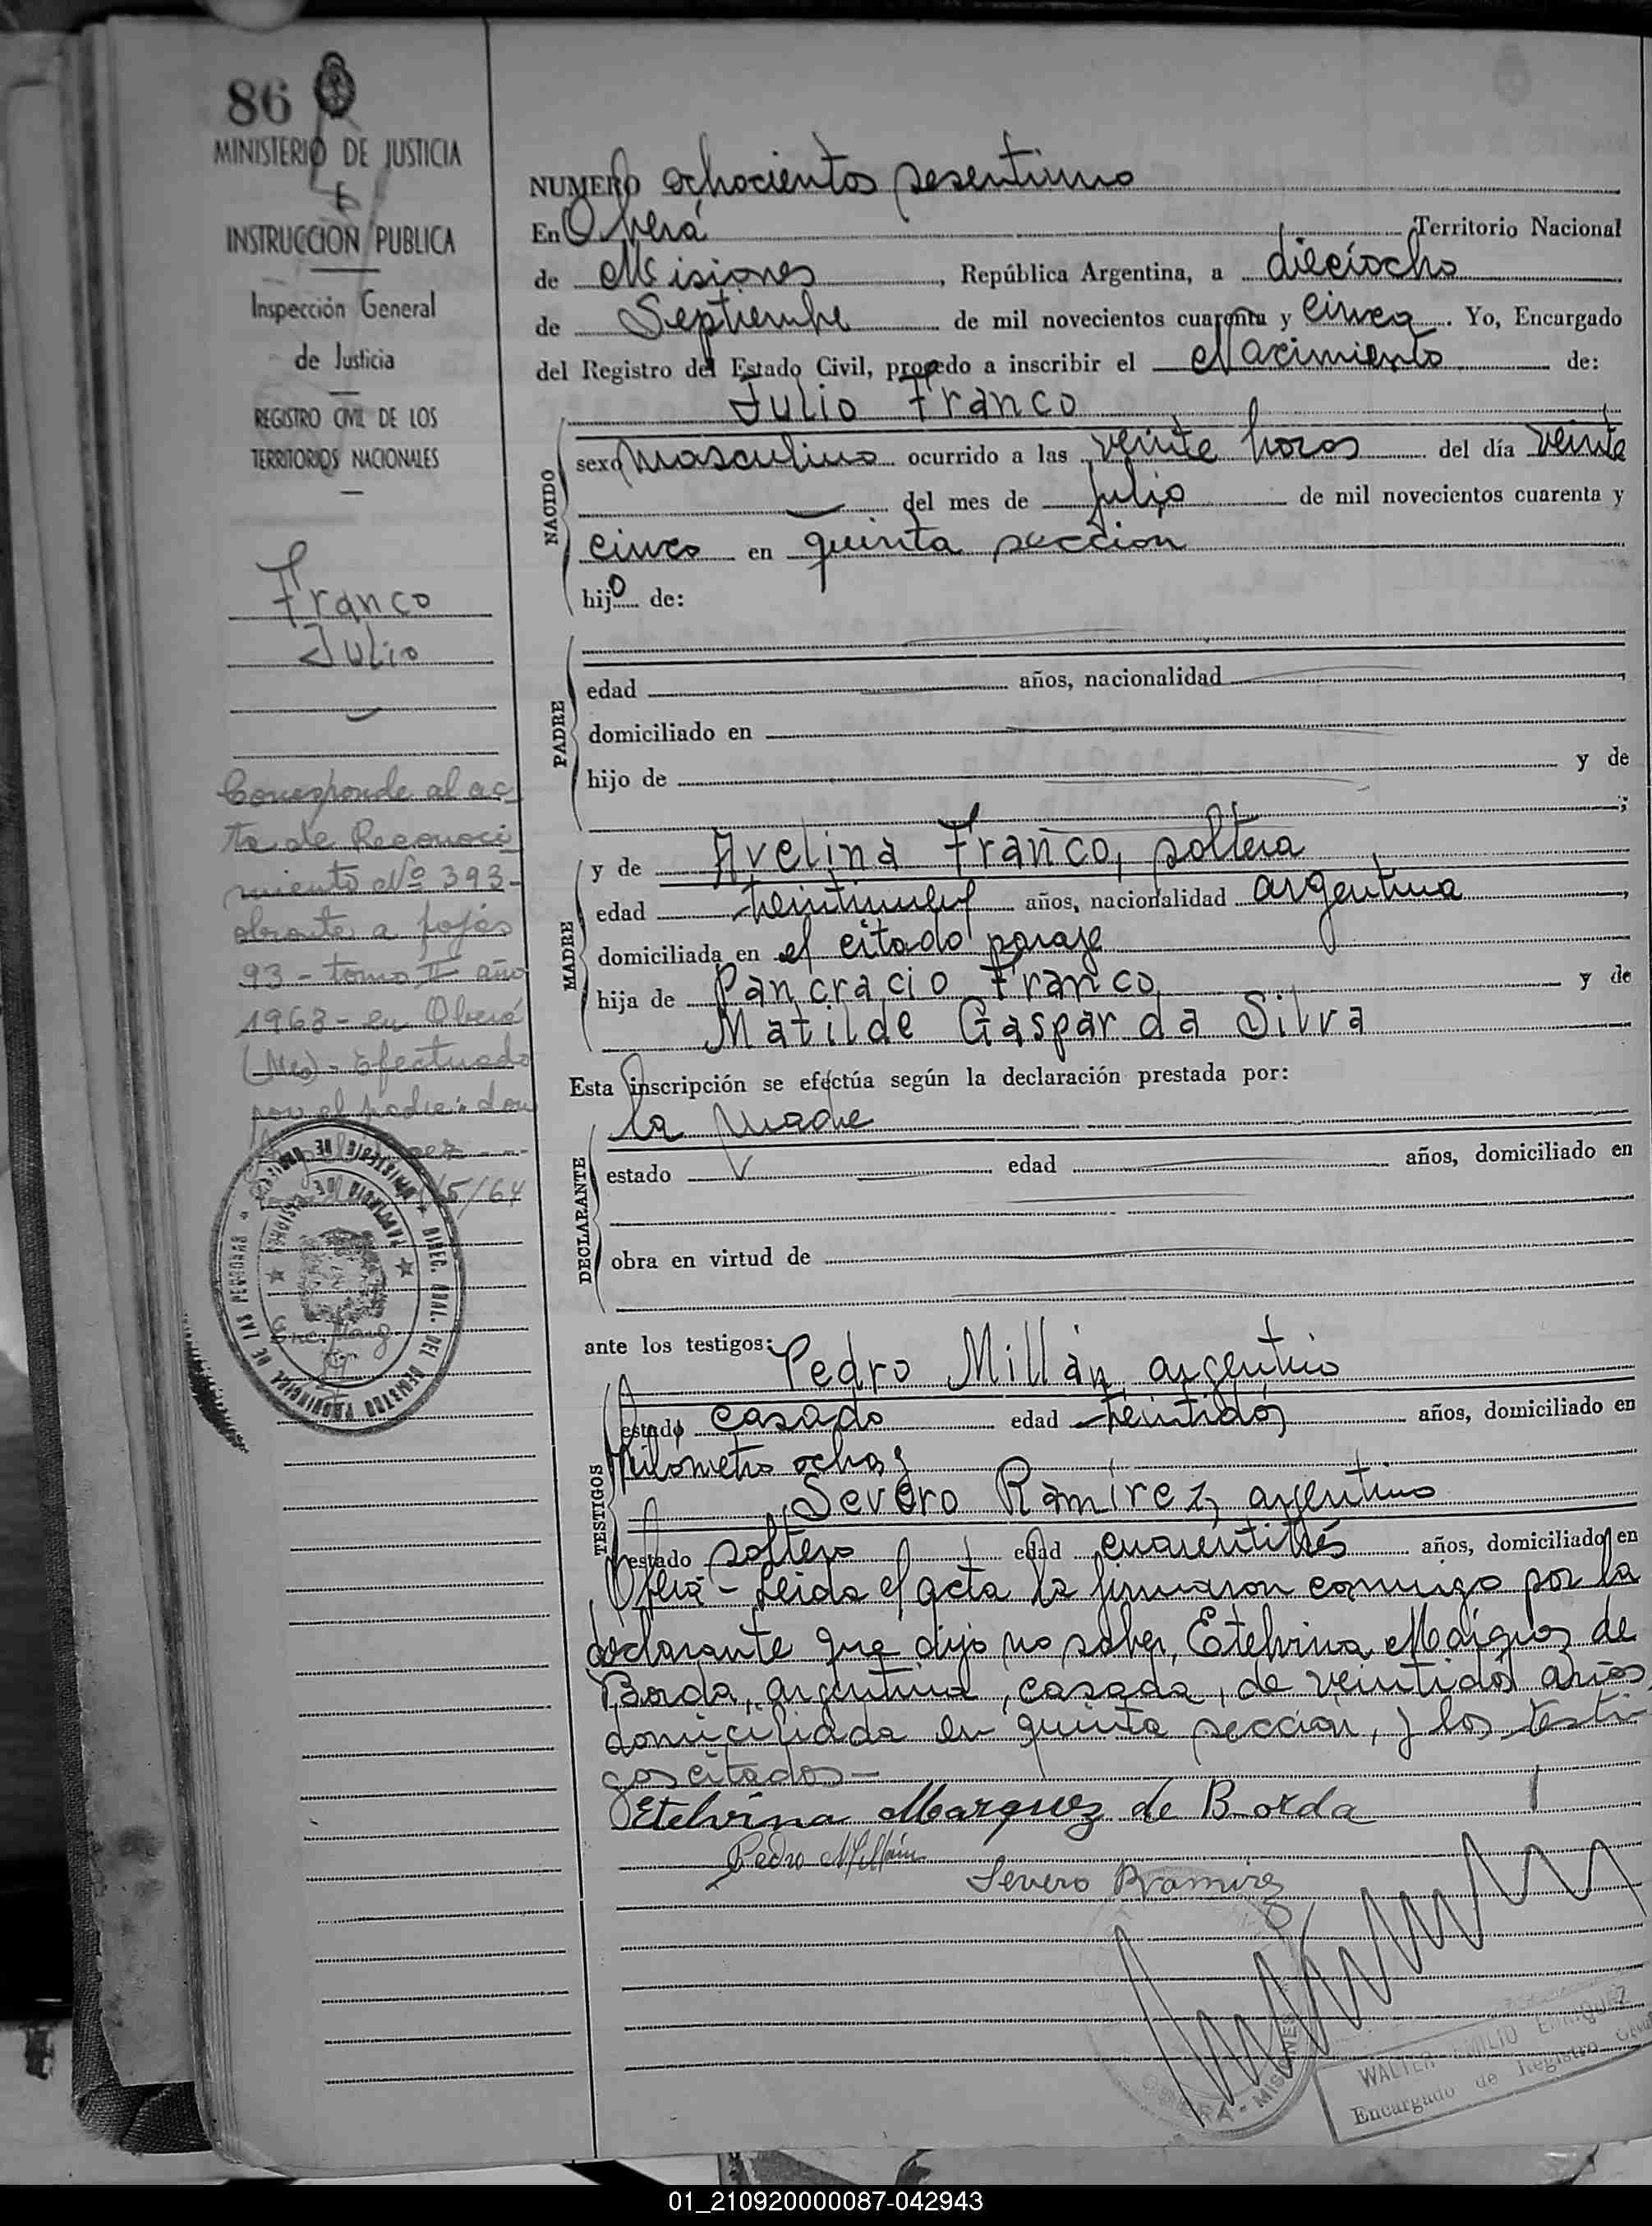 86
MINISTERIO DE JUSTICIA
E
INSTRUCCION PUBLICA
Inspección General
de Justicia
REGISTRO CIVIL DE LOS
TERRITORIOS NACIONALES
Franco
Julio
Corresponde al ac-
ta de Reconoci
miento Nº 393-
obrante a fojas
93 - tomo II año
1963 - en Oberá
(Mes) - Efectuado
por el padre: don
5/64
NUMERO ochocientos sesentiuno
En Oberá Territorio Nacional
de Misiones, República Argentina, a dieciocho
de Septiembre de mil novecientos cuarenta y cinco. Yo, Encargado
del Registro del Estado Civil, procedo a inscribir el Nacimiento de:
Julio Franco
NACIDO
sexo masculino ocurrido a las veinte horas del día veinte
del mes de julio de mil novecientos cuarenta y
cinco en quinta seccion
hijo de:
PADRE
edad años, nacionalidad
domiciliado en
hijo de y de
;
MADRE
y de Avelina Franco, soltera
edad años, nacionalidad argentina,
domiciliada en el citado paraje
hija de Pancracio Franco y de
Matilde Gaspar da Silva
Esta inscripción se efectúa según la declaración prestada por:
DECLARANTE
la madre
estado edad años, domiciliado en
obra en virtud de
ante los testigos:
TESTIGOS
Pedro Millán, argentino
estado casado edad treintidós años, domiciliado en
kilómetro ocho;
Severo Ramírez, argentino
estado soltero edad cuarentitrés años, domiciliado en
Oberá - Leida el acta la firmaron conmigo por la
declarante que dijo no saber, Etelvina Márquez de
Borda, argentina, casada, de veintidós años,
domiciliada en quinta sección, y los testi-
gos citados -
Etelvina Marquez de Borda
Pedro Millán
Severo Ramirez
WALTER EMILIO ENRIQUEZ
Encargado de Registro Civil
01_210920000087-042943